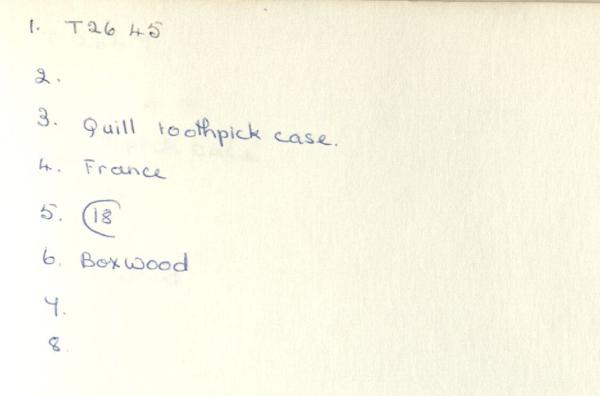 1. T26 45
2.
3. Quill toothpick case.
4. France
5. C18
6. Boxwood
7.
8.